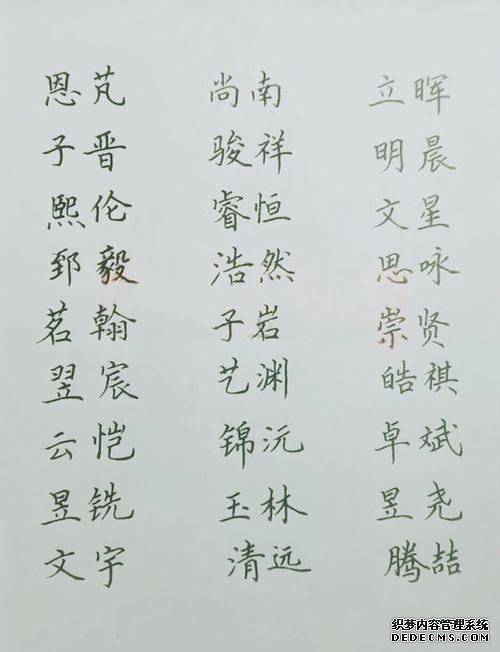 恩芃 尚南 立晖
子晋 骏祥 明晨
熙伦 睿恒 文星
郅毅 浩然 思咏
茗翰 子岩 崇贤
翌宸 艺渊 皓祺
云恺 锦沅 卓斌
昱铣 玉林 昱尧
文宇 清远 腾喆
织梦内容管理系统
DEDECMS.COM